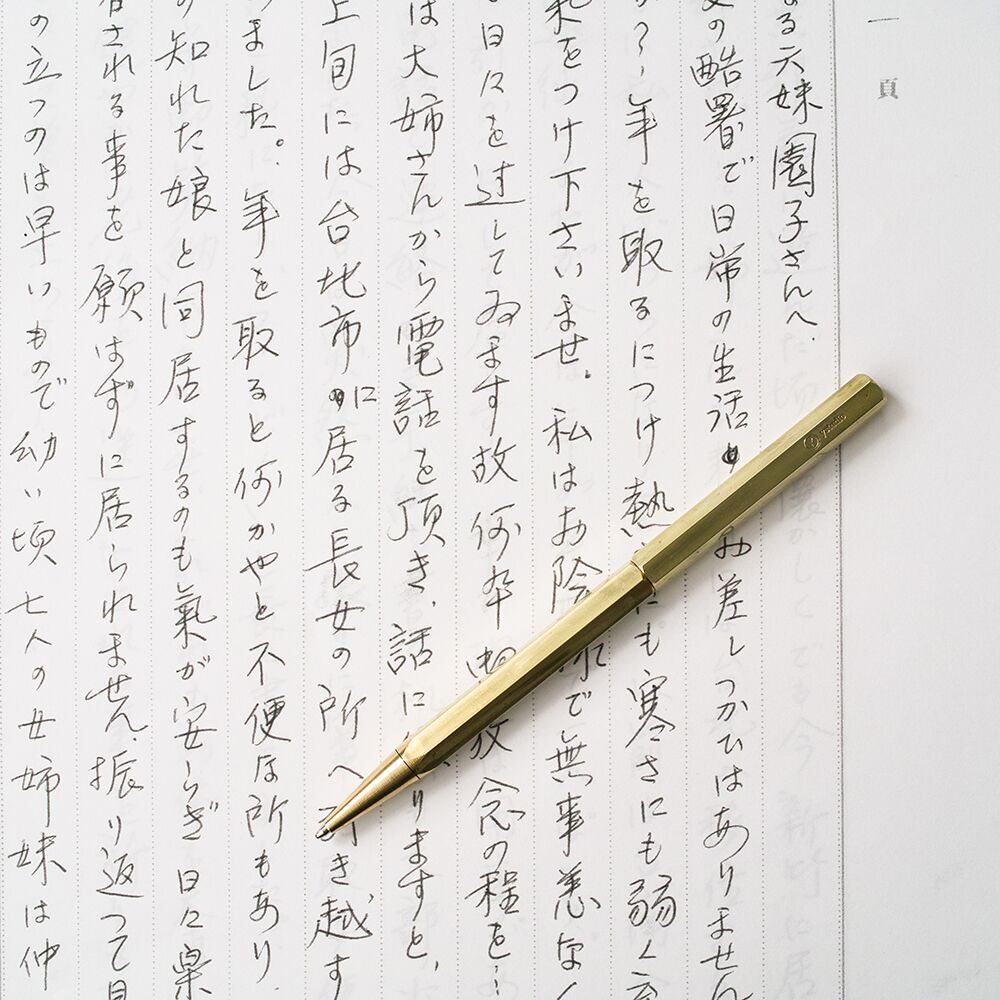 一頁
る六妹園子さんへ.
の酷暑で日常の生活 み差しつかひはありません
か?年を取るにつけ熱 にも寒さにも弱く
をつけ下さいませ。私はお陰 で無事恙なく
日々を过してゐます故何卆 放念の程を…
は大姉さんから電話を頂き、話に りますと,
上旬には台北市に居る長女の所へ引き越す
ました。年を取ると何かやと不便な所もあり
の知れた娘と同居するのも氣が安らぎ日々楽
される事を願はずに居られません、振り返つて見
の立つのは早いもので幼い頃七人の女姉妹は仲
ystudio